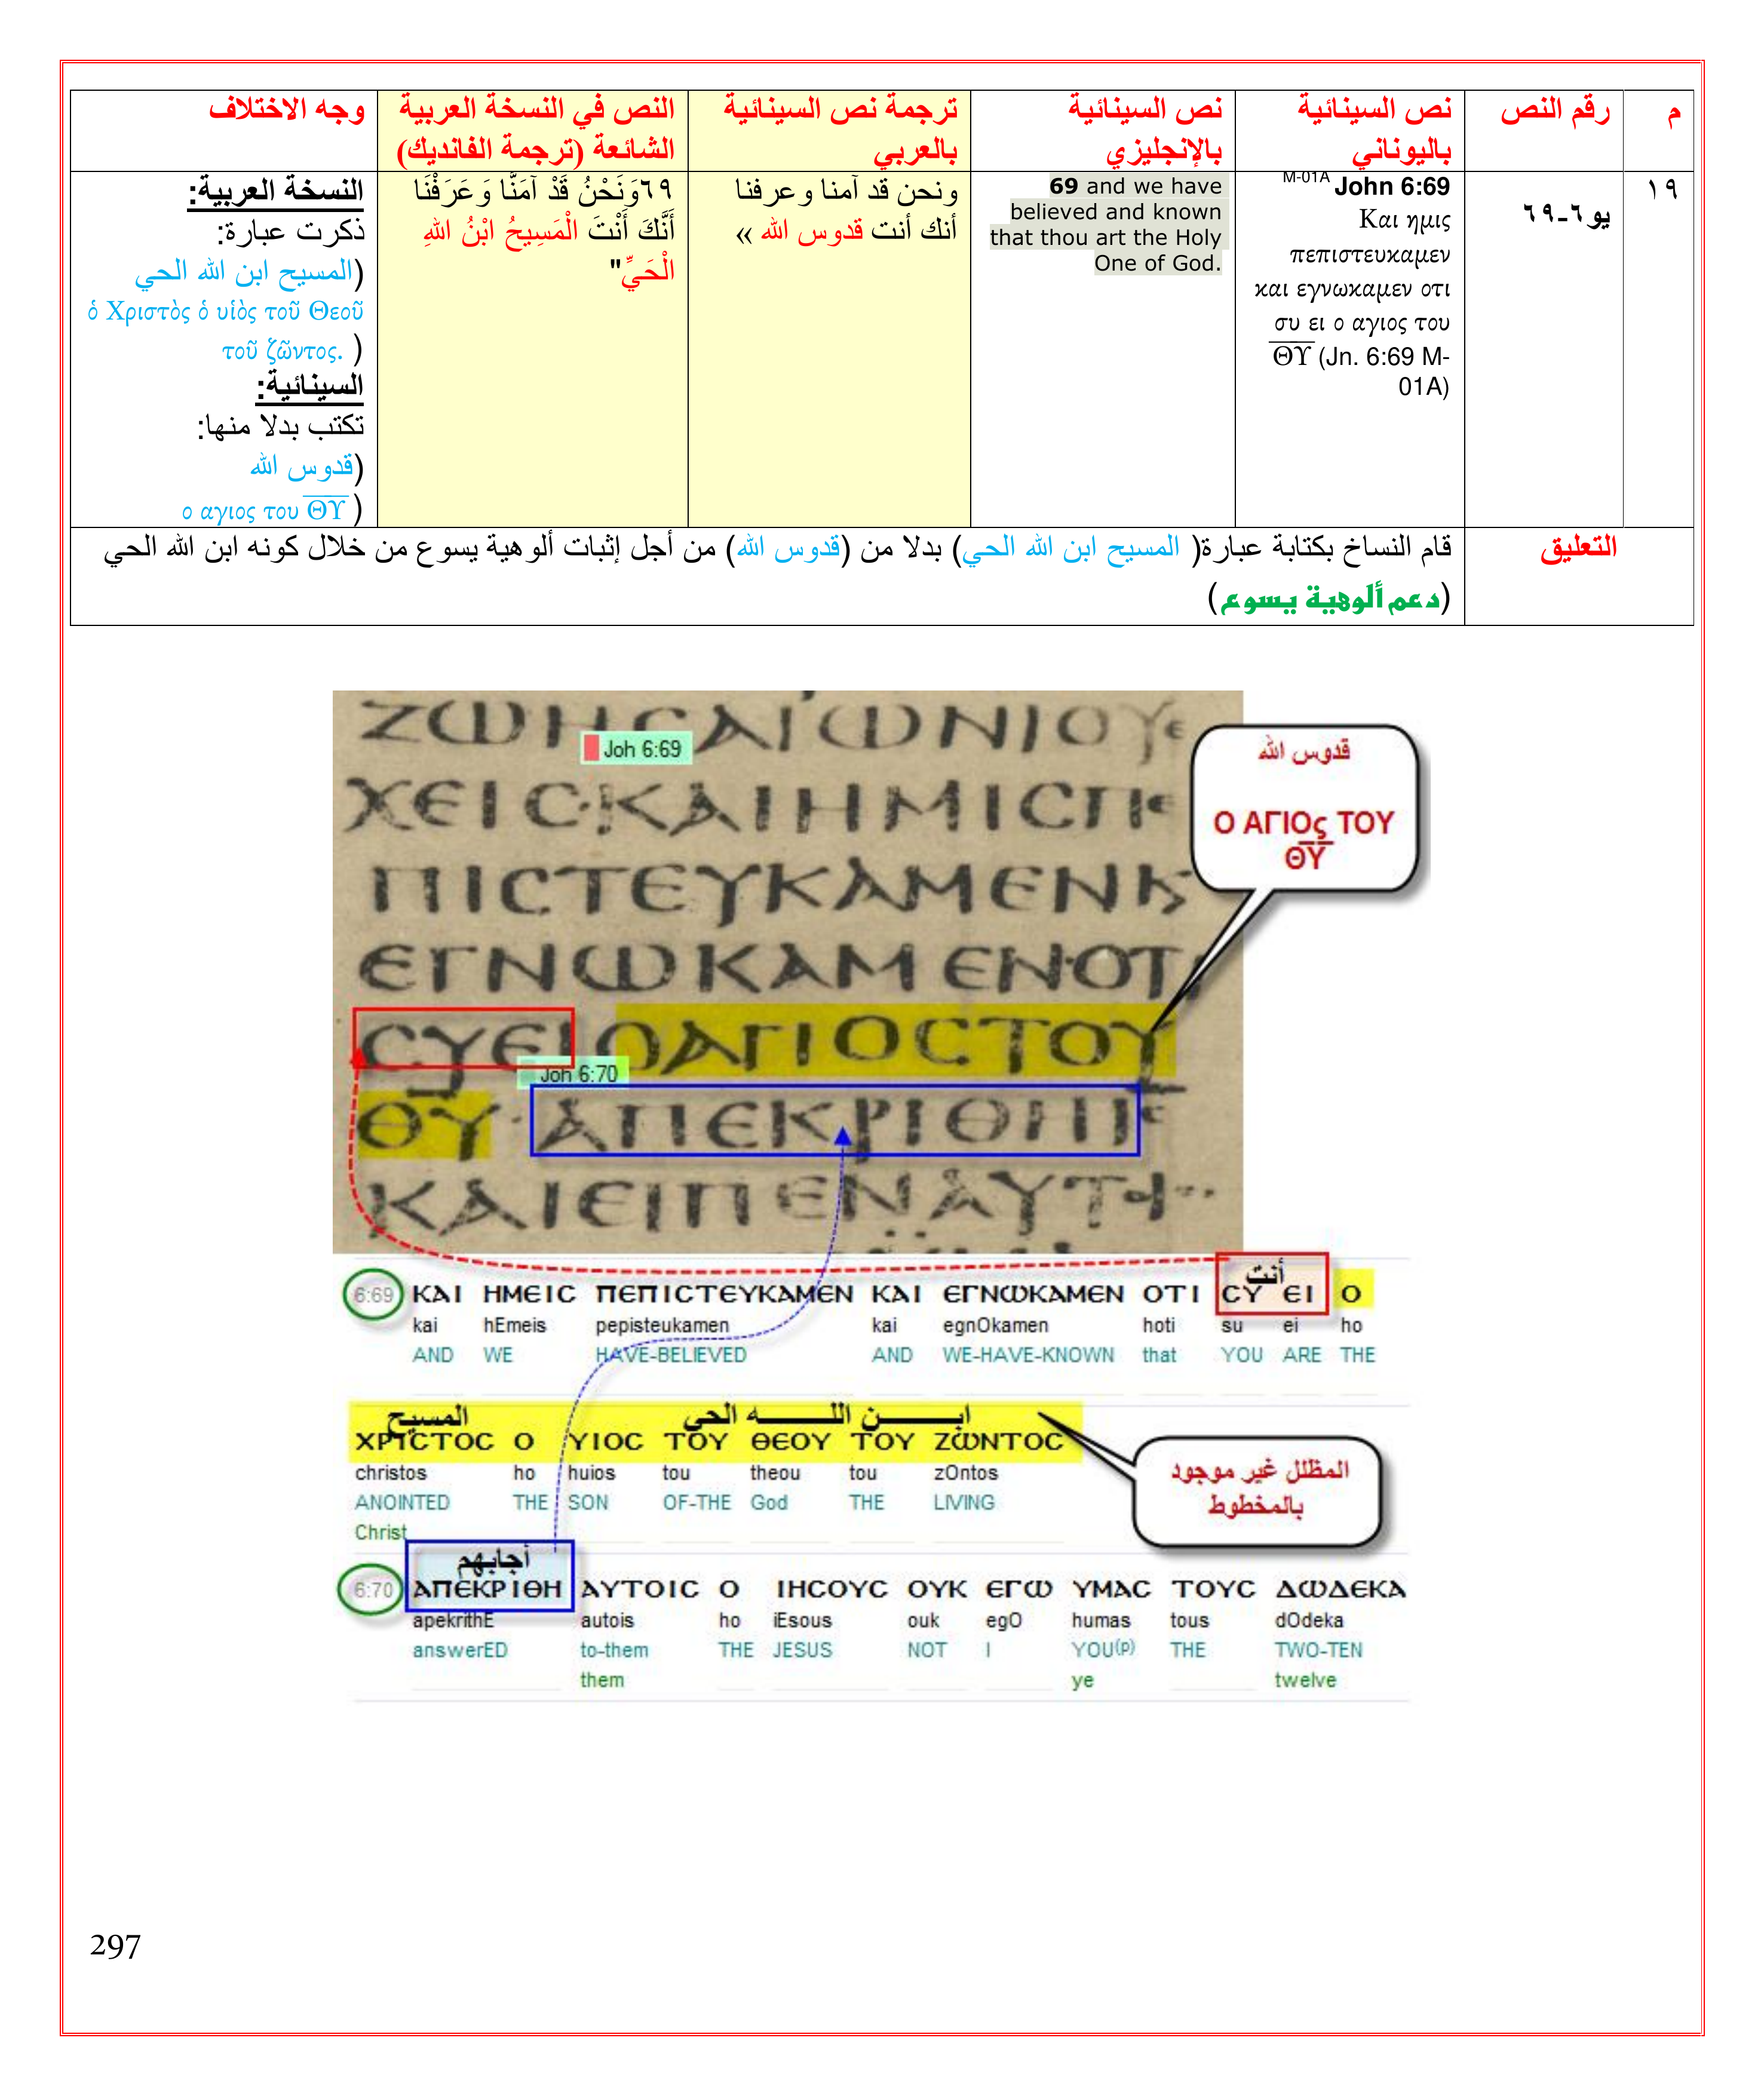 م
رقم النص
نص السينائية
باليوناني
نص السينائية
بالإنجليزي
ترجمة نص السينائية
بالعربي
النص في النسخة العربية
الشائعة (ترجمة الفانديك)
وجه الاختلاف
١٩
يو٦-٦٩
M-01A John 6:69
Και ημις
πεπιστευκαμεν
και εγνωκαμεν οτι
συ ει ο αγιος του
Θ̅Υ̅ (Jn. 6:69 M-
01A)
69 and we have
believed and known
that thou art the Holy
One of God.
ونحن قد آمنا وعرفنا
أنك أنت قدوس الله »
٦٩وَنَحْنُ قَدْ آمَنَّا وَعَرَفْنَا
أَنَّكَ أَنْتَ الْمَسِيحُ ابْنُ اللهِ
الْحَيِّ"
النسخة العربية:
ذكرت عبارة:
(المسيح ابن الله الحي
ὁ Χριστὸς ὁ υἱὸς τοῦ Θεοῦ
τοῦ ζῶντος. )
السينائية:
تكتب بدلا منها:
(قدوس الله
ο αγιος του Θ̅Υ̅ )
التعليق
قام النساخ بكتابة عبارة( المسيح ابن الله الحي) بدلا من (قدوس الله) من أجل إثبات ألوهية يسوع من خلال كونه ابن الله الحي
(دعم ألوهية يسوع)
ΖωΗϹΑΙωΝΙΟΥΕ
Joh 6:69
ΧΕΙϹ·ΚΑΙΗΜΙϹΠΕ
ΠΙϹΤΕΥΚΑΜΕΝΚ
ΕΓΝωΚΑΜΕΝ·ΟΤΙ
ϹΥΕΙΟΑΓΙΟϹΤΟΥ
Joh 6:70
ΘΥ·ΑΠΕΚΡΙΘΗΙϹ
ΚΑΙΕΙΠΕΝΑΥΤ
قدوس الله
Ο ΑΓΙΟς ΤΟΥ
Θ̅Υ̅
أنت
6:69 ΚΑΙ ΗΜΕΙϹ ΠΕΠΙϹΤΕΥΚΑΜΕΝ ΚΑΙ ΕΓΝωΚΑΜΕΝ ΟΤΙ ϹΥ ΕΙ Ο
kai hEmeis pepisteukamen kai egnOkamen hoti su ei ho
AND WE HAVE-BELIEVED AND WE-HAVE-KNOWN that YOU ARE THE
المسيح ابـــن اللـــه الحي
ΧΡΙϹΤΟϹ Ο ΥΙΟϹ ΤΟΥ ΘΕΟΥ ΤΟΥ ΖωΝΤΟϹ
christos ho huios tou theou tou zOntos
ANOINTED THE SON OF-THE God THE LIVING
Christ
المظلل غير موجود
بالمخطوط
أجابهم
6:70 ΑΠΕΚΡΙΘΗ ΑΥΤΟΙϹ Ο ΙΗϹΟΥϹ ΟΥΚ ΕΓω ΥΜΑϹ ΤΟΥϹ ΔωΔΕΚΑ
apekrithE autois ho iEsous ouk egO humas tous dOdeka
answerED to-them THE JESUS NOT I YOU(p) THE TWO-TEN
them ye twelve
297